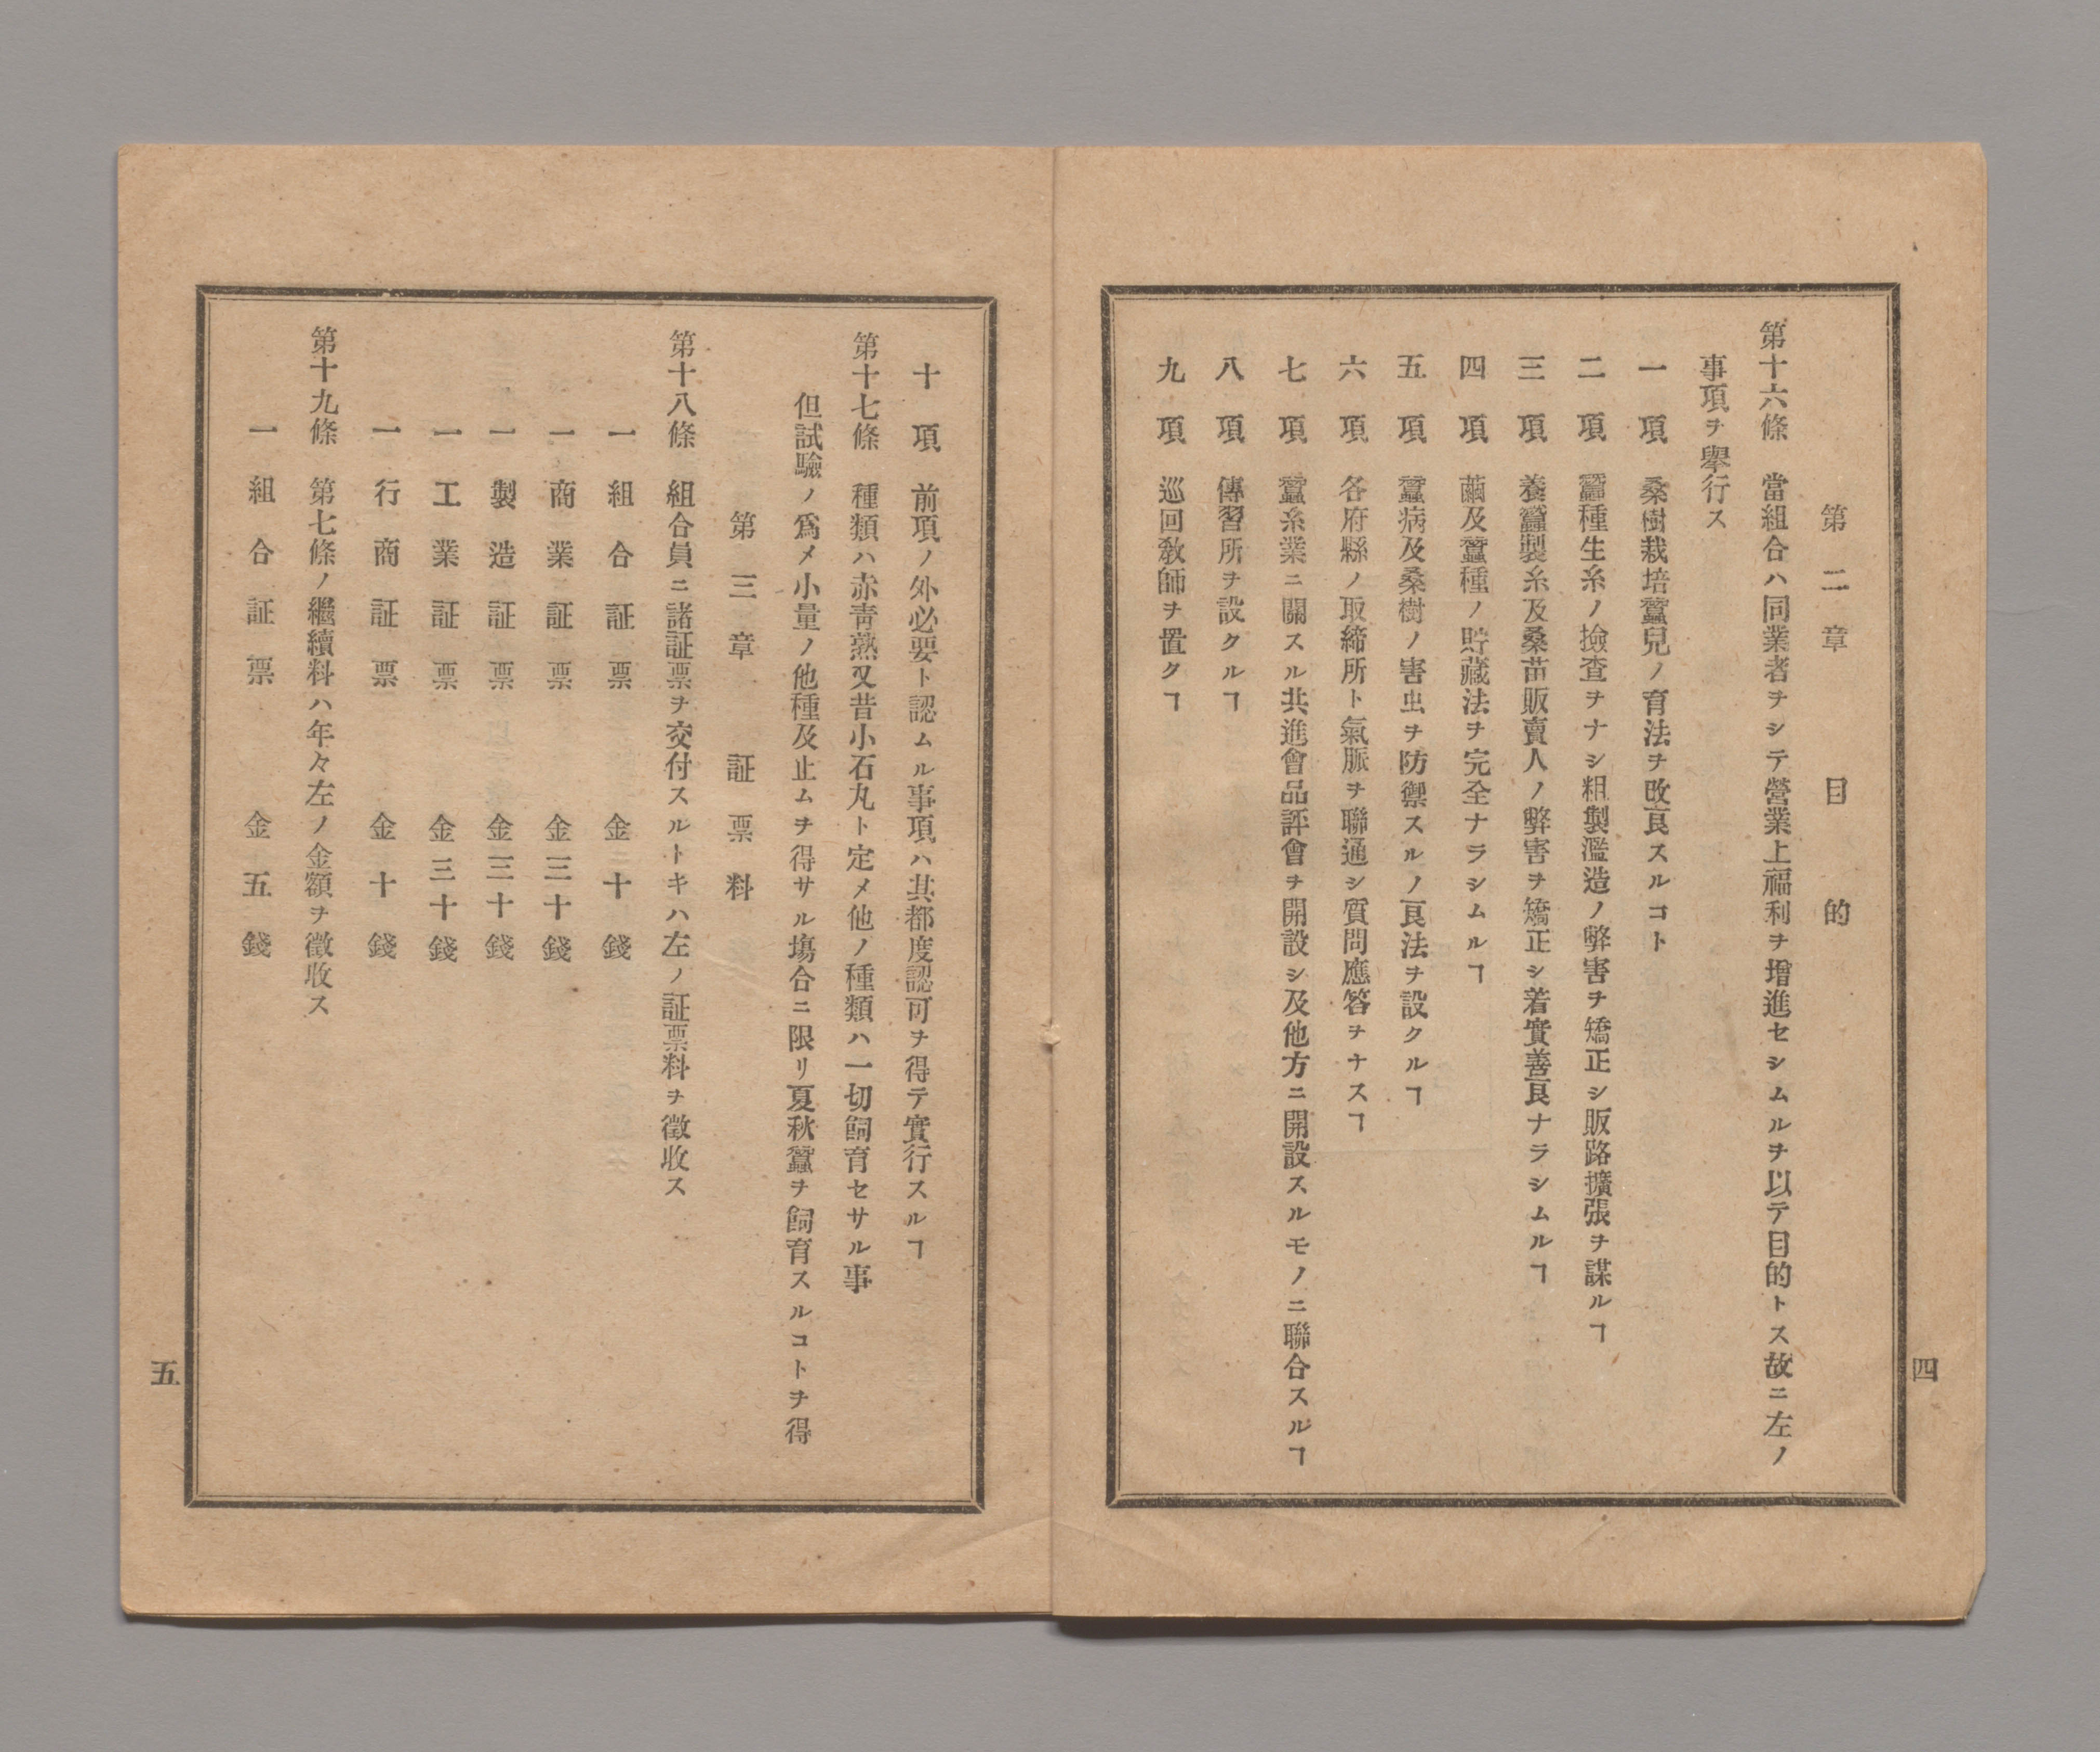 第二章　目的
第十六條　當組合ハ同業者ヲシテ營業上福利ヲ增進セシムルヲ以テ目的トス故ニ左ノ
事項ヲ擧行ス
一項　桑樹栽培蠶兒ノ育法ヲ改良スルコト
二項　蠶種生糸ノ撿査ヲナシ粗製濫造ノ弊害ヲ矯正シ販路擴張ヲ謀ルヿ
三項　養蠶製糸及桑苗販賣人ノ弊害ヲ矯正シ着實善良ナラシムルヿ
四項　繭及蠶種ノ貯藏法ヲ完全ナラシムルヿ
五項　蠶病及桑樹ノ害虫ヲ防禦スルノ良法ヲ設クルヿ
六項　各府縣ノ取締所ト氣脈ヲ聯通シ質問應答ヲナスヿ
七項　蠶糸業ニ關スル共進會品評會ヲ開設シ及他方ニ開設スルモノニ聯合スルヿ
八項　傳習所ヲ設クルヿ
九項　巡回敎師ヲ置クヿ
四
十項　前項ノ外必要ト認ムル事項ハ其都度認可ヲ得テ實行スルヿ
第十七條　種類ハ赤靑熟又昔小石丸ト定メ他ノ種類ハ一切飼育セサル事
但試驗ノ爲メ小量ノ他種及止ムヲ得サル塲合ニ限リ夏秋蠶ヲ飼育スルコトヲ得
第三章　証票料
第十八條　組合員ニ諸証票ヲ交付スルトキハ左ノ証票料ヲ徵收ス
一組合証票　金二十錢
一商業証票　金三十錢
一製造証票　金三十錢
一工業証票　金三十錢
一行商証票　金十錢
第十九條　第七條ノ繼續料ハ年々左ノ金額ヲ徵收ス
一組合証票　金五錢
五